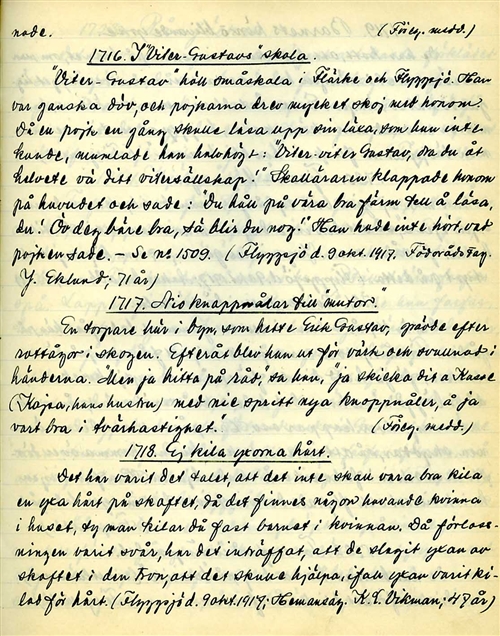 nade. (Föreg. medd.)
1716. I "Viter-Gustavs" skola.
"Viter-Gustav" höll småskola i Flärke och Flyggsjö. Han
var ganska döv, och pojkarna drev mycket skoj med honom.
Då en pojk en gång skulle läsa upp sin läxa, som han inte
kunde, mumlade han halvhögt: "Viter-viter Gustav, dra du åt
helvete vä ditt vitersällskap!" Skolläraren klappade honom
på huvudet och sade: "Du håll på våra bra färm tell å läsa,
du! Öv dej bäre bra, så blir du nog!" Han hade inte hört, vad
pojken sade. – Se nr 1509. (Flyggsjö d. 9 okt. 1917. Födorådstag.
J. Eklund; 71 år)
1717. Nio knappnålar till "mutor".
En torpare här i byn, som hette Erik Gustav, grävde efter
rottågor i skogen. Efteråt blev han ut för värk och svullnad i
händerna. "Men ja hitta på råd," sa han, "ja skicka dit a Kasse
(Kajsa, hans hustru) med nie spritt nya knappnåler, å ja
vart bra i tvärhastighet." (Föreg. medd.)
1718. Ej kila yxorna hårt.
Det har varit det talet, att det inte skall vara bra kila
en yxa hårt på skaftet, då det finnes någon havande kvinna
i huset, ty man kilar då fast barnet i kvinnan. Då förloss-
ningen varit svår, har det inträffat, att de slagit yxan av
skaftet i den tron, att det skulle hjälpa, ifall yxan varit ki-
lad för hårt. (Flyggsjö d. 9 okt. 1917; Hemmansäg. K. E. Vikman; 47 år)